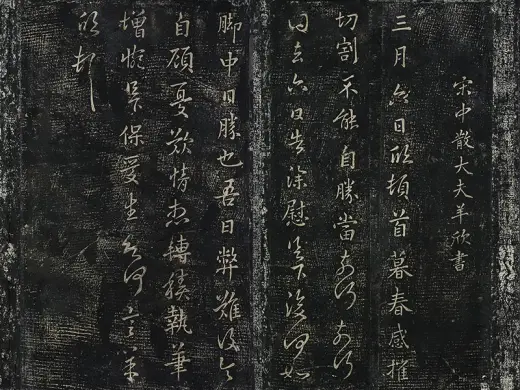 宋中散大夫羊欣書
三月六日欣頓首暮春感摧
切割不能自勝當奈何奈何
得去六日告深慰足下後何如
腳中日勝也吾日弊難復令
自顧憂歎情想轉積執筆
增惋足保愛書欲何言羊
欣頓